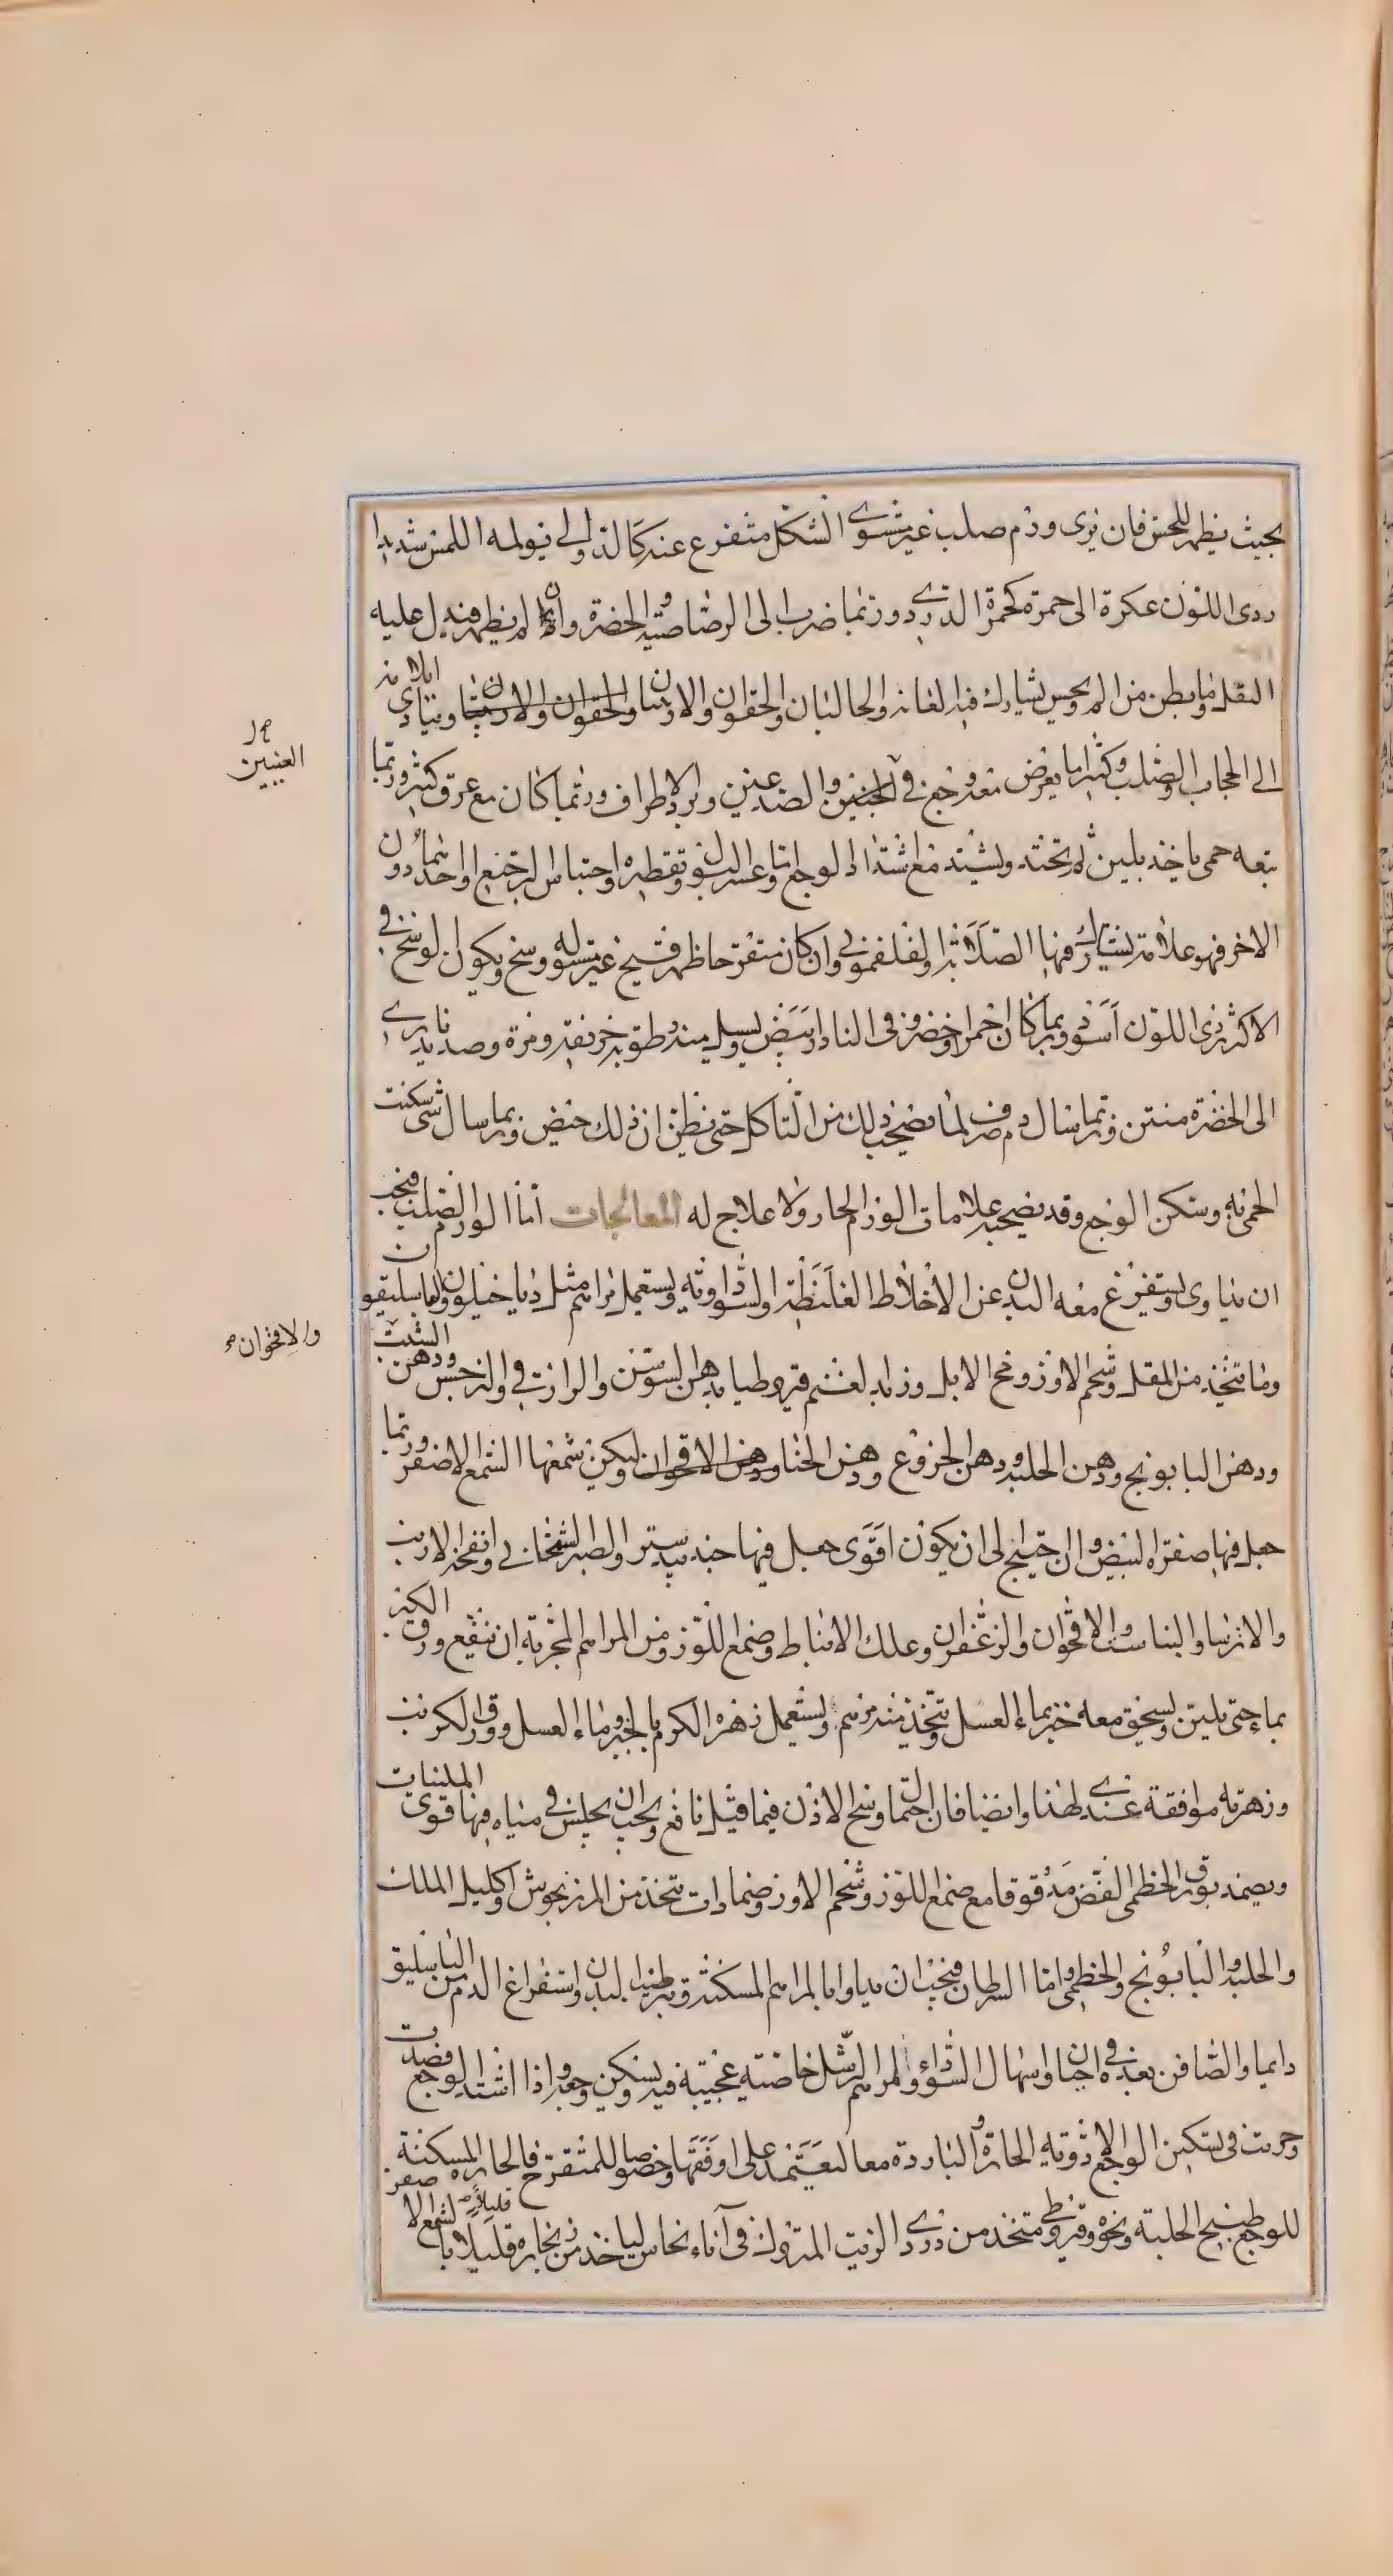 بحيث يظهر للحس فان يرى ورم صلب غير مستوى الشكل متفرع عنه كالدوالى يولمه اللمس شديدا
ردى اللون عكرة الى حمرة كحمرة الدردى وربما ضرب الى الرصاصية والخضرة وان لم يظهر فيدل عليه
الثقل وما يبطن من الم ويحس يشارك فيه العانة والحالبان والحقوان والاربيتان ويتادى ايلامه
الى الحجاب والصلب وكثيرا ما يعرض معه وجع فى الجبين والصدغين وبرد الاطراف وربما كان مع عرق كثير وربما
العينين
تبعه حمى ياخذ بلين ثم تحتد ويشتد مع اشتداد الوجع واما عسر البول وتقطيره واحتباس البرجتمع او احدهما دون
الاخر فهو علامة يشارك فيها الصلابة والفلغمونى وان كان متقرحا ظهر قبيح غير مستو له وسخ ويكون لوسخ فى
الاكثر ردى اللون اسود وربما كان احمر او اخضر وفى النادر ابيض ويسيل منه رطوبة حريفة ومرة وصديدية يرى
الى الخضرة منتن وربما سال دم صرف لما يصحب ذلك من التاكل حتى يظن ان ذلك حيض وربما سال شى سكنت
الحمى به وسكن الوجع وقد يصحبه علامات الورم الحار ولا علاج له المعالجات اما الورم الصلب فيجب
ان يداوى ويستفرغ معه البدن عن الاخلاط الغليظة والسوداوية ويستعمل مراهم مثل دياخيلون والباسليقون
وما تتخذ من المقل وشحم الاوز ومخ الابل وزبد الغنم قيروطيا بدهن السوسن والرازقى والنرجس ودهن الشبت
والاقحوان
ودهن البابونج ودهن الحلبة ودهن الخروع ودهن الحنا ودهن الاقحوان وليكن شمعها الشمع الاصفر وربما
جعل فيها صفرة البيض وان احتيج الى ان يكون اقوى جعل فيها جندبيدستر والصبر وانفحة الارنب
والايرسا والاقحوان والزعفران وعلك الانباط وصمغ اللوز ومن المراهم المجربة ان ينقع ورق الكرنب
بماء حتى يلين ويسحق معه خبز بماء العسل ويتخذ منه مرهم ويستعمل زهرة الكرم بالخبز وماء العسل وورق الكرنب
وزهرته موافقة عندى لهذا وايضا فان احتمال وسخ الاذن فيما قيل نافع ويجب ان يجلس فى مياه فيها قوى الملينات
ويضمد بورق الخطمى الغض مدقوقا مع صمغ اللوز وشحم الاوز وضمادات تتخذ من المرزنجوش واكليل الملك
والحلبة والبابونج والخطمى واما السرطان فيجب ان يداوا بالمراهم المسكنة وترطيب البدن واستفراغ الدم من الباسليق
دايما والصافن بعده فى احيان واسهال السوداء والمراهم الرسل خاصته عجيبة فيه يسكن وجعه واذا اشتد الوجع فصدت
وجربت فى تسكين الوجع الادوية الحارة والباردة معا لتعتمد على اوفقها وخصوصا للمتقرح فالحارة المسكنة
للوجع طبيخ الحلبة ونحوه وقيروطى متخذ من دردى الزيت المتروك فى آناء نحاس لياخذ من زنجاره قليلا بالشمع الاصفر